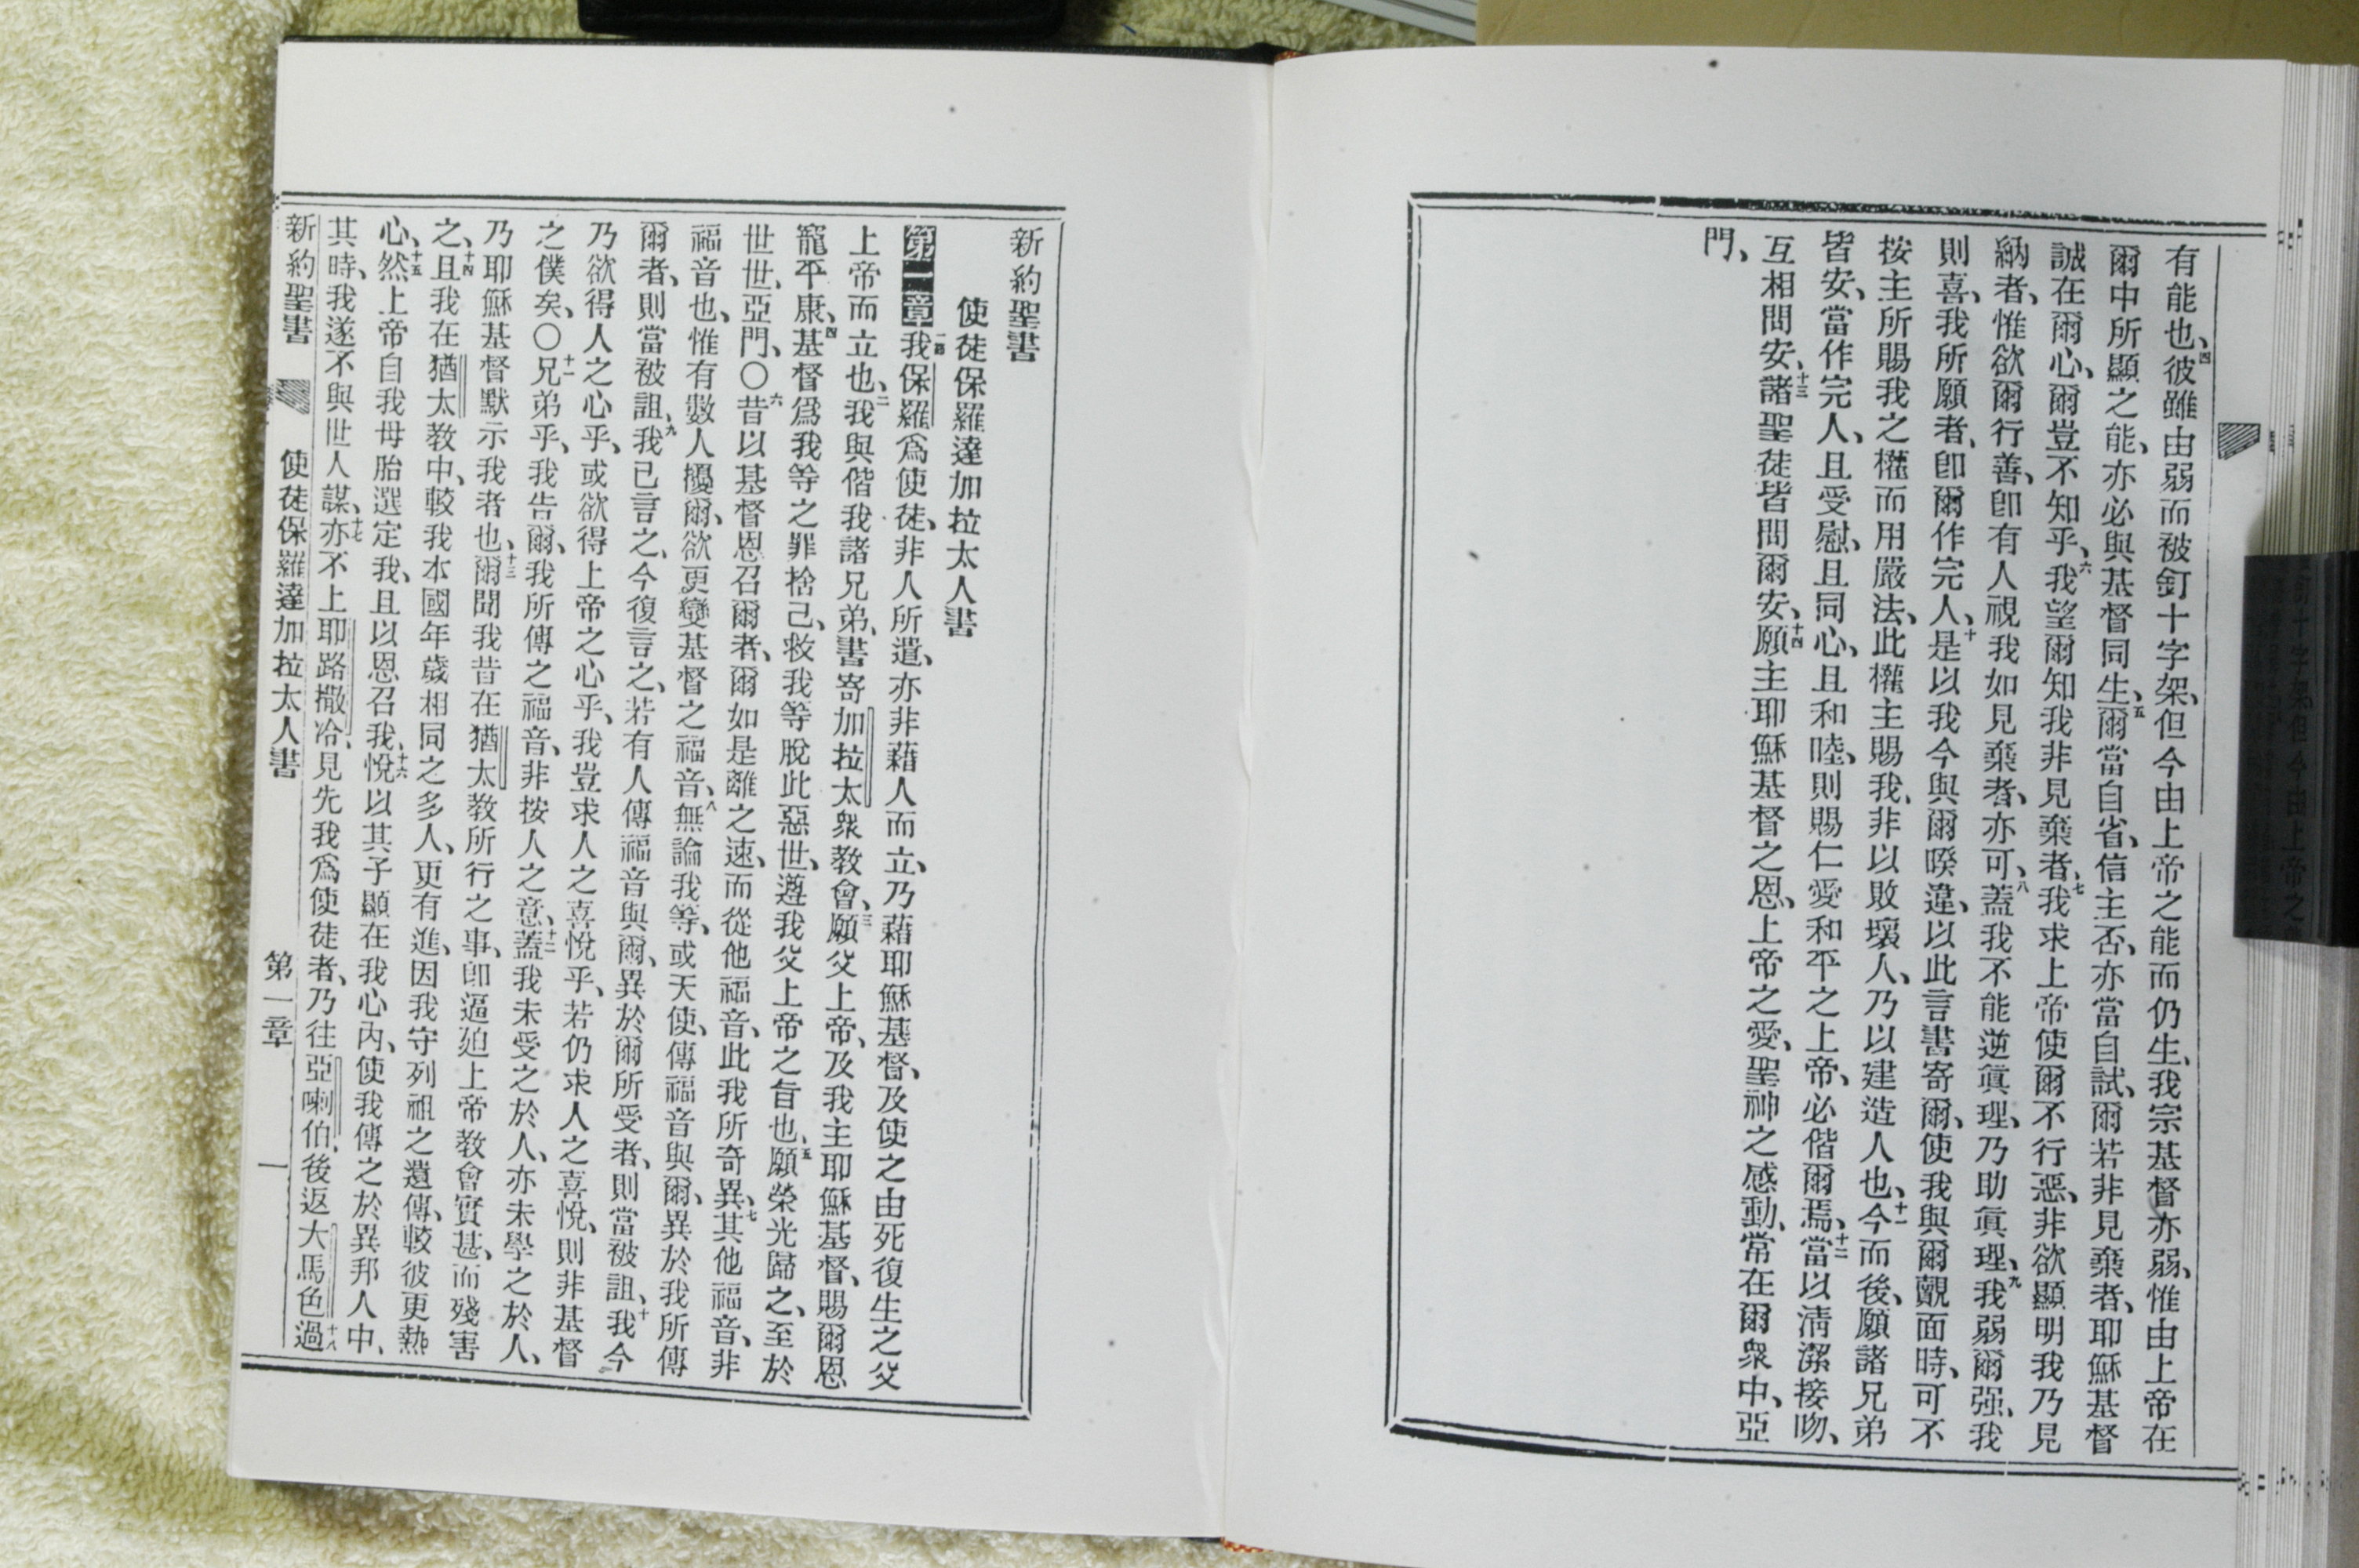 有能也、四彼雖由弱而被釘十字架、但今由上帝之能而仍生、我宗基督亦弱、惟由上帝在
爾中所顯之能、亦必與基督同生、五爾當自省、信主否、亦當自試、爾若非見棄者、耶穌基督
誠在爾心、爾豈不知乎、六我望爾知我非見棄者、七我求上帝使爾不行惡、非欲顯明我乃見
納者、惟欲爾行善、卽有人視我如見棄者、亦可、八蓋我不能逆眞理、乃助眞理、九我弱爾强、我
則喜、我所願者、卽爾作完人、十是以我今與爾暌違、以此言書寄爾、使我與爾覿面時、可不
按主所賜我之權而用嚴法、此權主賜我、非以敗壞人、乃以建造人也、十一今而後、願諸兄弟
皆安、當作完人、且受慰、且同心、且和睦、則賜仁愛和平之上帝、必偕爾焉、十二當以淸潔接吻、
互相問安、十三諸聖徒皆問爾安、十四願主耶穌基督之恩、上帝之愛、聖神之感動、常在爾衆中、亞
門、
新約聖書
使徒保羅達加拉太人書
第一章一節我保羅爲使徒、非人所遣、亦非藉人而立、乃藉耶穌基督、及使之由死復生之父
上帝而立也、二我與偕我諸兄弟、書寄加拉太衆教會、三願父上帝、及我主耶穌基督、賜爾恩
寵平康、四基督爲我等之罪捨己、救我等脫此惡世、遵我父上帝之旨也、五願榮光歸之、至於
世世、亞門、〇六昔以基督恩召爾者、爾如是離之速、而從他福音、此我所奇異、七其他福音、非
福音也、惟有數人擾爾、欲更變基督之福音、八無論我等、或天使、傳福音與爾、異於我所傳
爾者、則當被詛、九我已言之、今復言之、若有人傳福音與爾、異於爾所受者、則當被詛、十我今
乃欲得人之心乎、或欲得上帝之心乎、我豈求人之喜悅乎、若仍求人之喜悅、則非基督
之僕矣、〇十一兄弟乎、我告爾、我所傳之福音、非按人之意、十二蓋我未受之於人、亦未學之於人、
乃耶穌基督默示我者也、十三爾聞我昔在猶太教所行之事、卽逼廹上帝教會實甚、而殘害
之、十四且我在猶太教中、較我本國年歲相同之多人、更有進、因我守列祖之遺傳、較彼更熱
心、十五然上帝自我母胎選定我、且以恩召我、十六悅以其子顯在我心內、使我傳之於異邦人中、
其時、我遂不與世人謀、十七亦不上耶路撒冷、見先我爲使徒者、乃往亞喇伯、後返大馬色、十八過
新約聖書 使徒保羅達加拉太人書 第一章 一